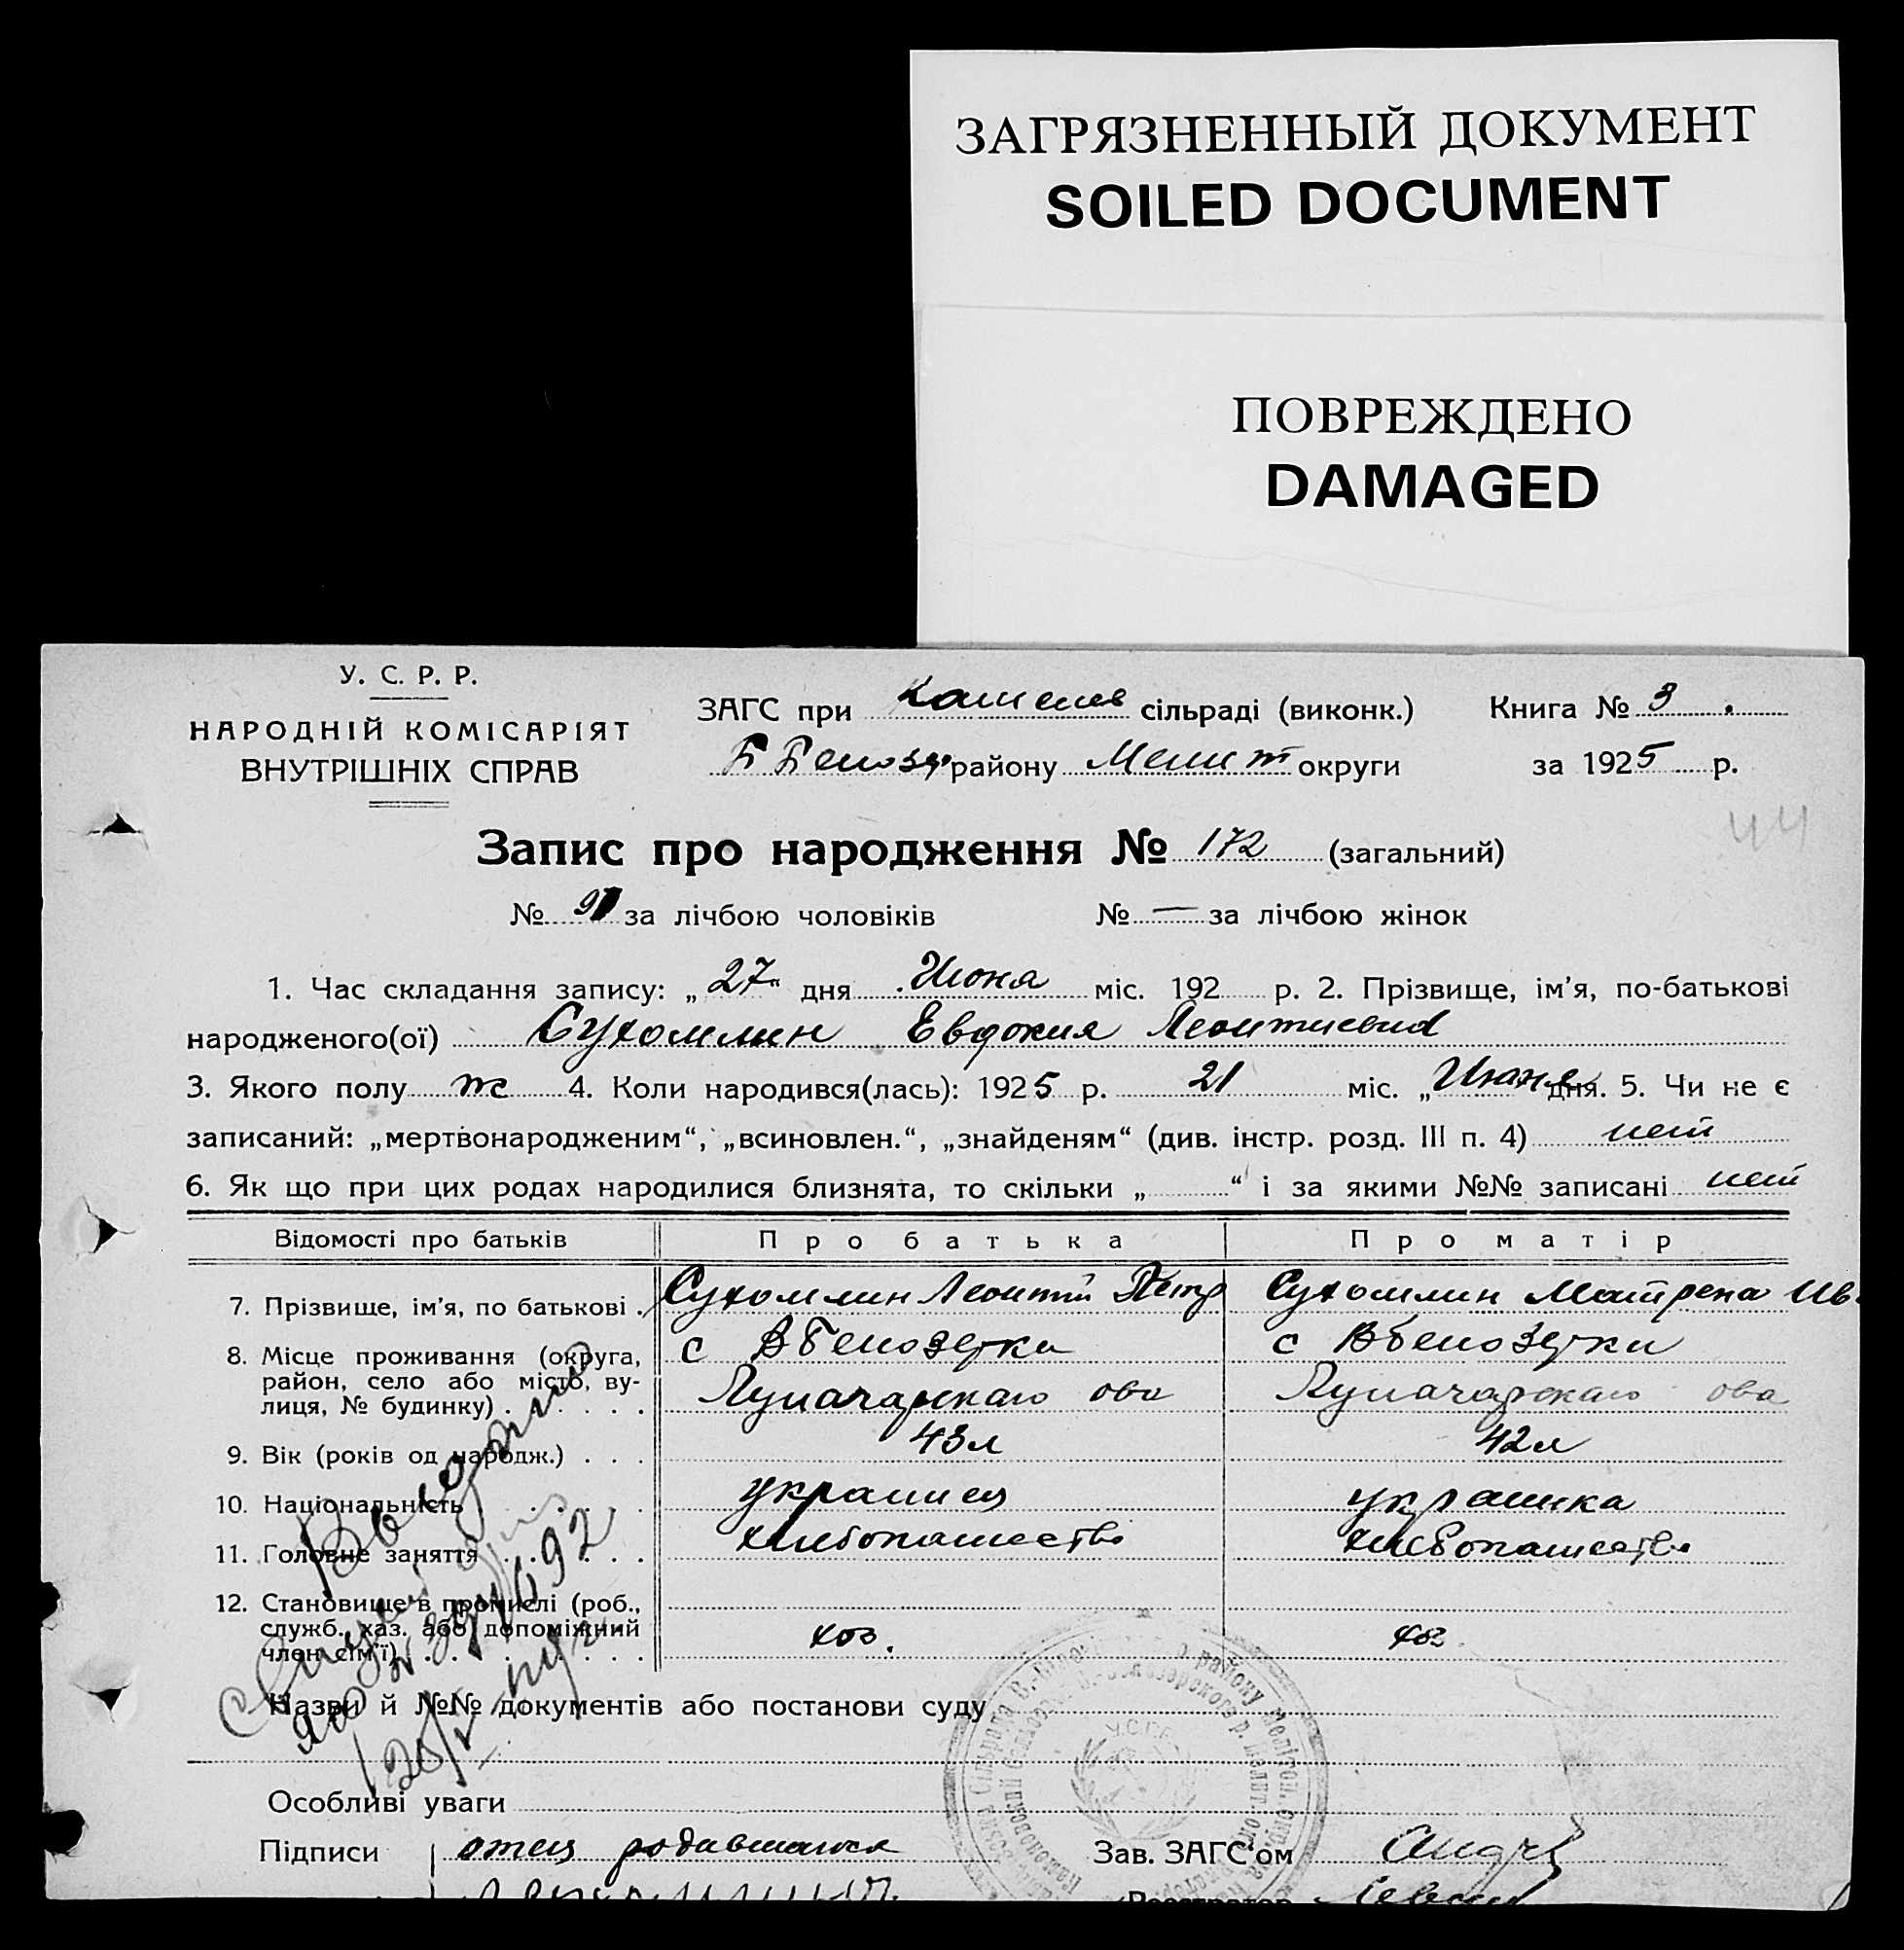 ЗАГРЯЗНЕННЫЙ ДОКУМЕНТ
SOILED DOCUMENT
ПОВРЕЖДЕНО
DAMAGED
У. С. Р. Р.
НАРОДНІЙ КОМІСАРІЯТ
ВНУТРІШНІХ СПРАВ
ЗАГС при сільраді (виконк.) Книга № 3
району Мелит округи за 1925 р.
44
Запис про народження № 172 (загальний)
№ за лічбою чоловіків № — за лічбою жінок
1. Час складання запису: „27“ дня Июня міс. 192 р. 2. Прізвище, ім’я, по-батькові
народженого(ої) Сухомлин Евдокия
3. Якого полу ж 4. Коли народився(лась): 1925 р. 21 міс. „Июня дня. 5. Чи не є
записаний: „мертвонародженим“, „всиновлен.“, „знайденям“ (див. інстр. розд. III п. 4) нет
6. Як що при цих родах народилися близнята, то скільки „ “ і за якими №№ записані нет
Відомості про батьків Про батька Про матір
7. Прізвище, ім’я, по батькові . Сухомлин Леонтій Петр Сухомлин Матрена Ив.
8. Місце проживання (округа, с Вбелозерки с Вбелозерки
район, село або місто, ву-
лиця, № будинку) Луначарскаго ова Луначарскаго ова
9. Вік (років од народж.) . . . 43л 42л
10. Національність украинец украинка
11. Головне заняття хлебопашество хлебопашество
12. Становище в промислі (роб.,
служб., хаз. або допоміжний хоз. хоз.
член сім’ї)
Назви й №№ документів або постанови суду
Особливі уваги
Підписи отец родившагося Зав. ЗАГС‘ом
Реєстратор